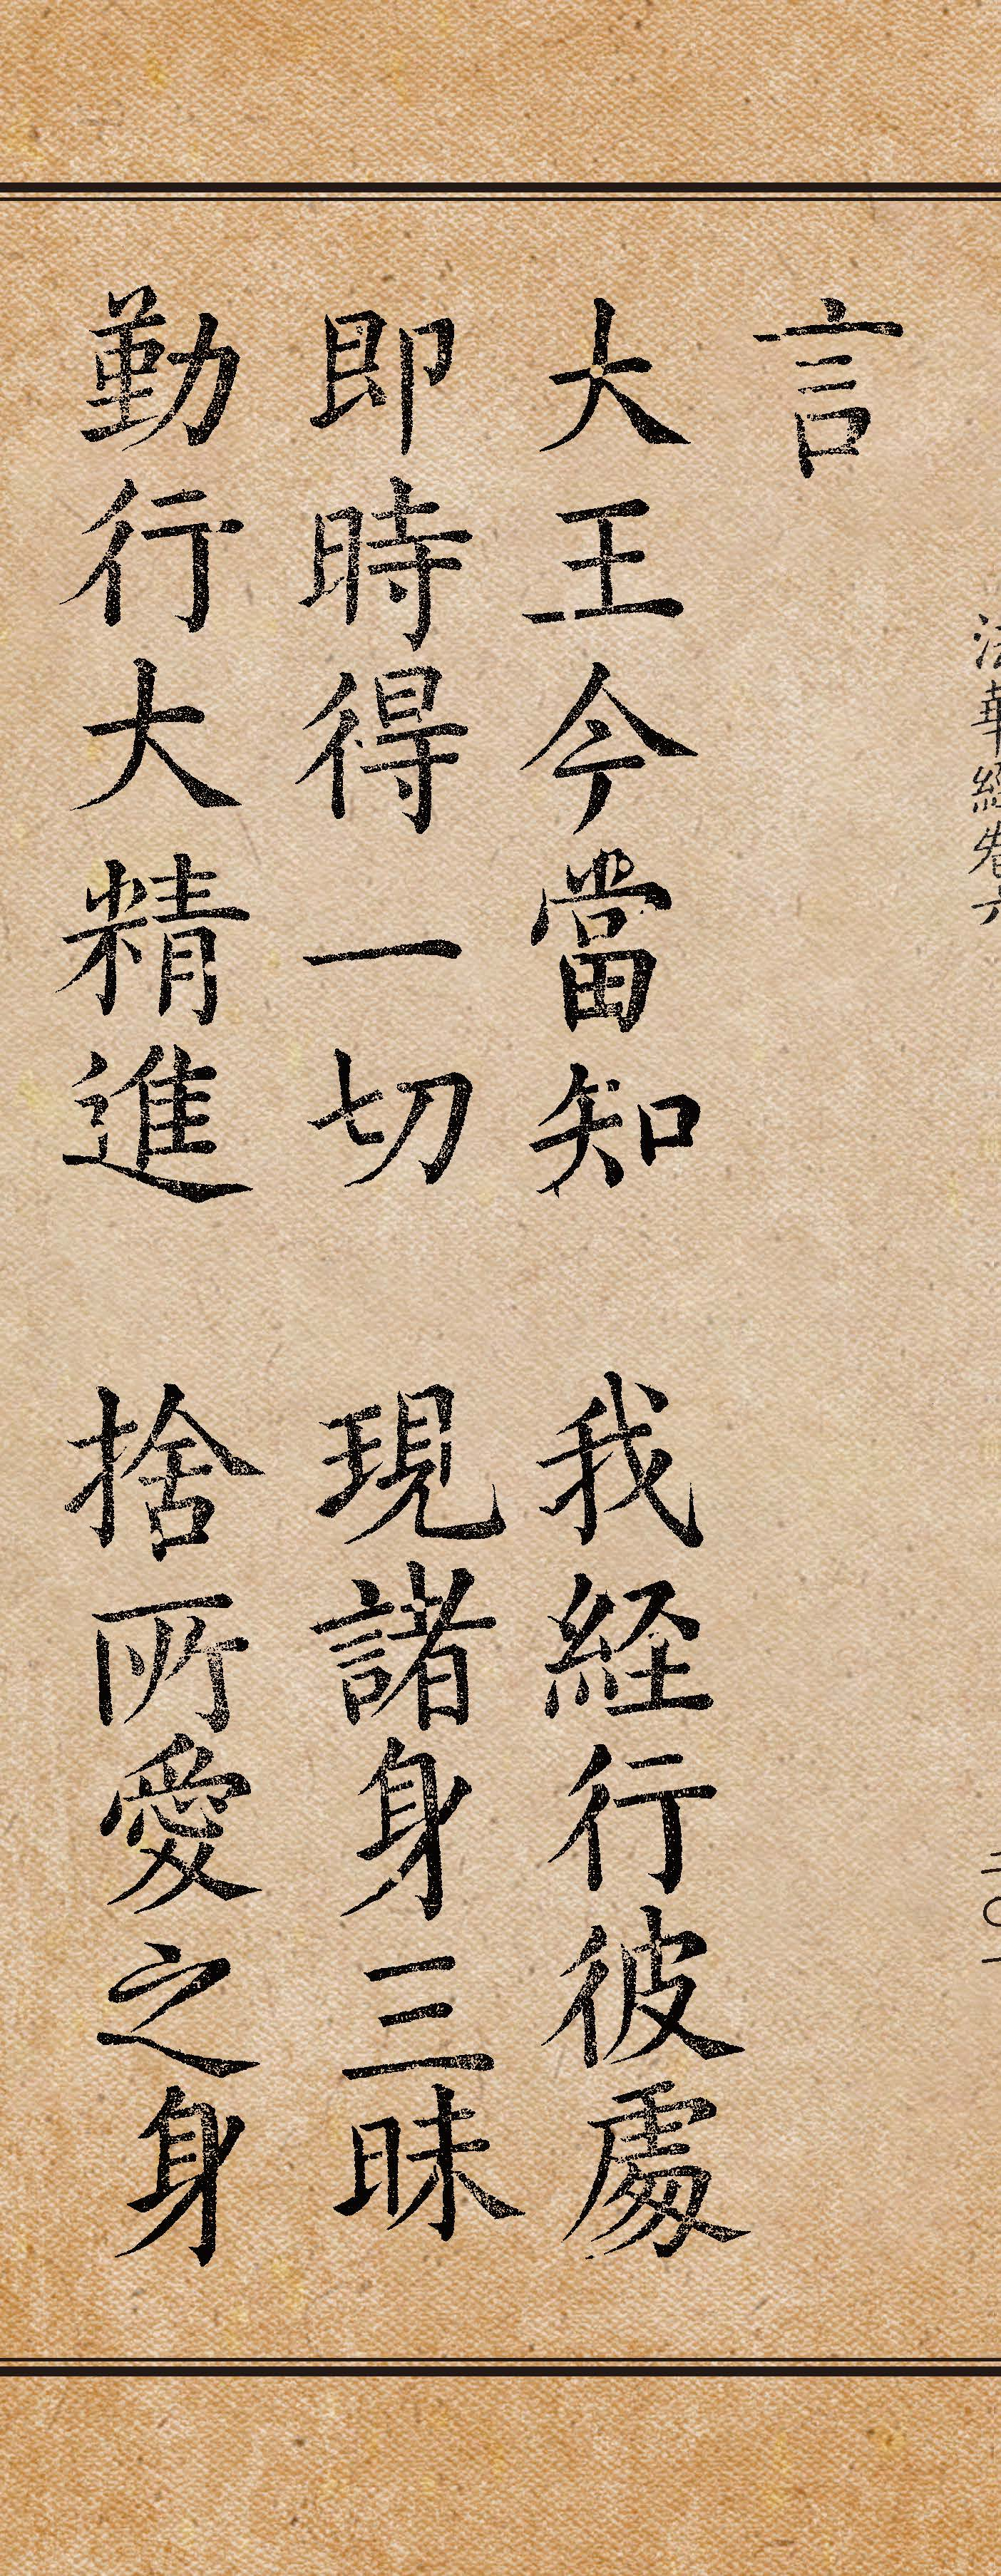 法華経巻六
二〇一
言
大王今當知 我経行彼處
即時得一切 現諸身三昧
勤行大精進 捨所愛之身